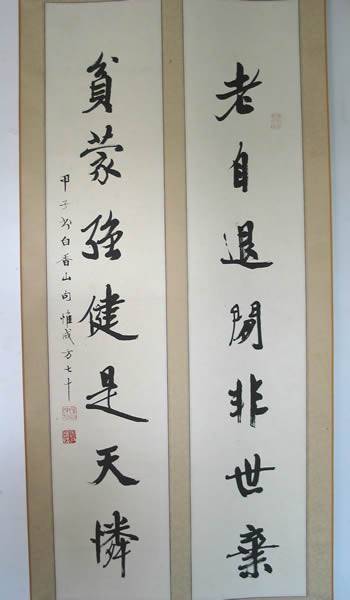 老自退閒非世棄
貧蒙強健是天憐
甲子书白香山句惟成方七十